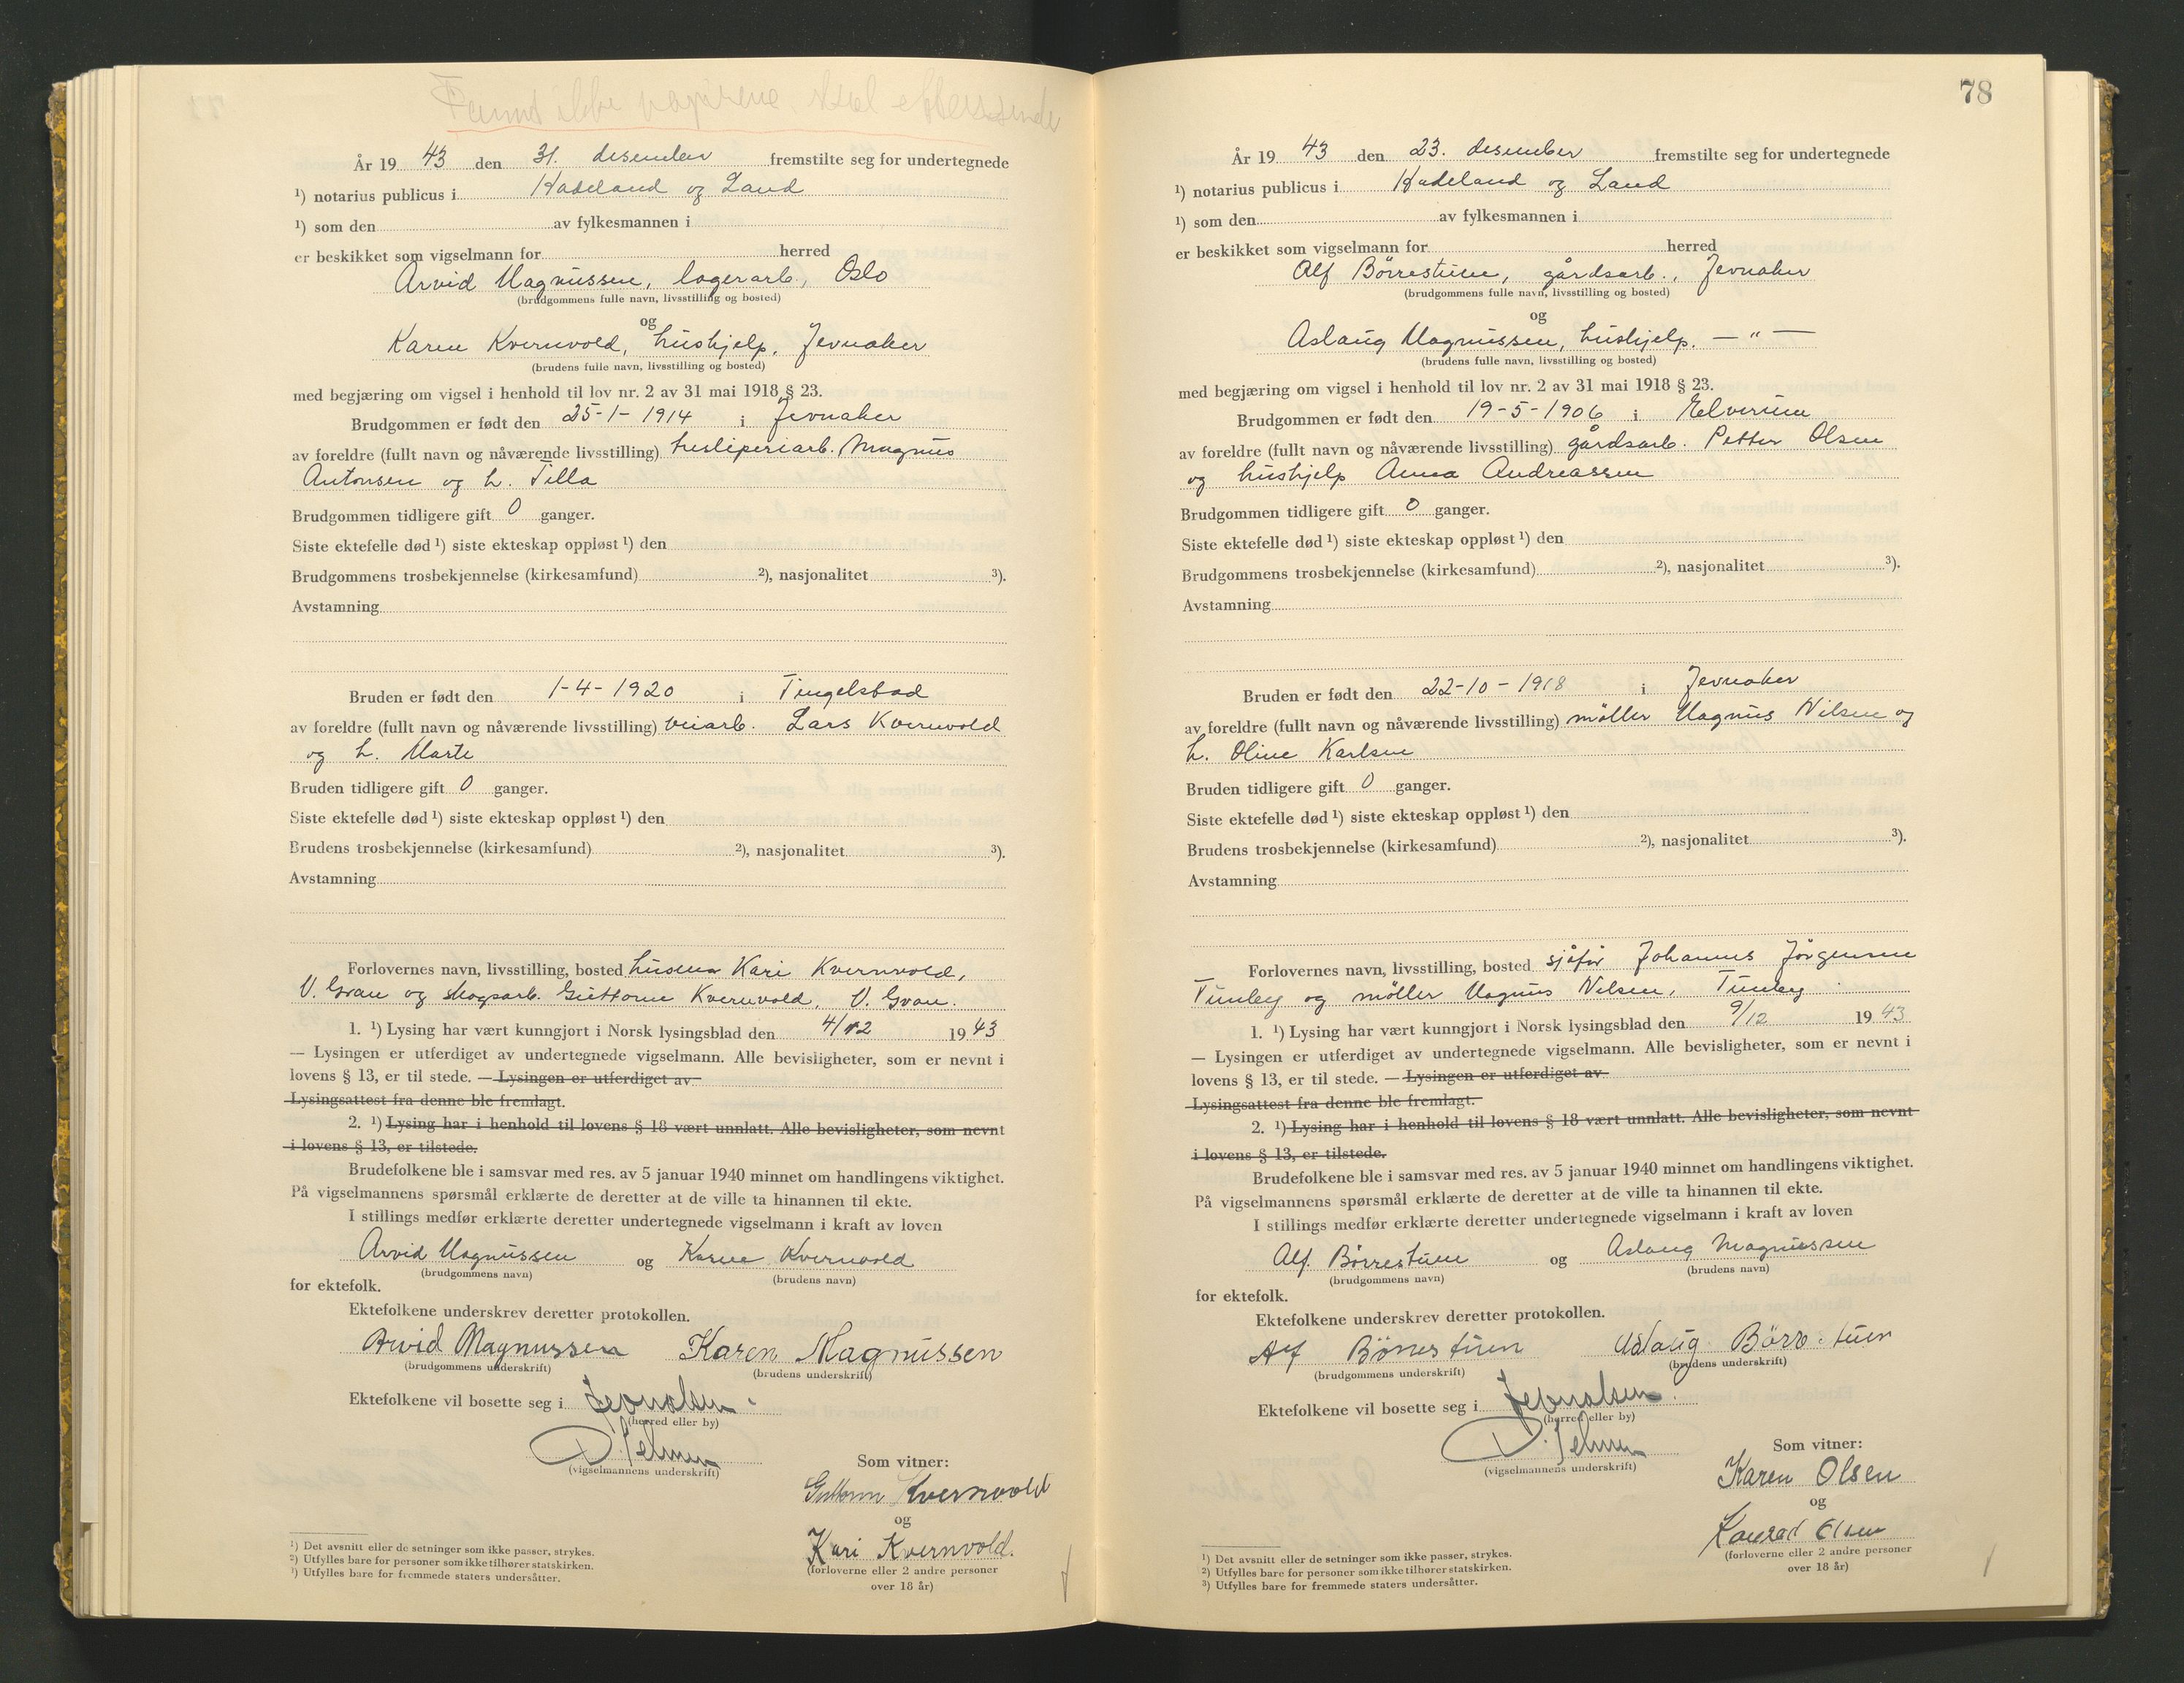 Fannt ikke papirene. skal ettersende
År 19 43 den 31. desember fremstilte seg for undertegnede
¹) notarius publicus i Hadeland og Land
¹) som den av fylkesmannen i
er beskikket som vigselmann for herred
Arvid Magnussen, lagerarb., Oslo
(brudgommens fulle navn, livsstilling og bosted)
og
Karen Kvernvold, hushjelp, Jevnaker
(brudens fulle navn, livsstilling og bosted)
med begjæring om vigsel i henhold til lov nr. 2 av 31 mai 1918 § 23.
Brudgommen er født den 25-1-1914 i Jevnaker
av foreldre (fullt navn og nåværende livsstilling) tresliperiarb. Magnus
Antonsen og h. Tilla
Brudgommen tidligere gift 0 ganger.
Siste ektefelle død ¹) siste ekteskap oppløst ¹) den
Brudgommens trosbekjennelse (kirkesamfund) ²), nasjonalitet ³).
Avstamning
Bruden er født den 1-4-1920 i Tingelstad
av foreldre (fullt navn og nåværende livsstilling) veiarb. Lars Kvernvold
og h. Marte
Bruden tidligere gift 0 ganger.
Siste ektefelle død ¹) siste ekteskap oppløst ¹) den
Brudens trosbekjennelse (kirkesamfund) ²), nasjonalitet ³).
Avstamning
Forlovernes navn, livsstilling, bosted Kari Kvernvold,
V. Gran og skogsarb. Guttorm Kvernvold, V. Gran.
1. ¹) Lysing har vært kunngjort i Norsk lysingsblad den 4/12 19 43
— Lysingen er utferdiget av undertegnede vigselmann. Alle bevisligheter, som er nevnt i
lovens § 13, er til stede. — Lysingen er utferdiget av
Lysingsattest fra denne ble fremlagt.
2. ¹) Lysing har i henhold til lovens § 18 vært unnlatt. Alle bevisligheter, som nevnt
i lovens § 13, er tilstede.
Brudefolkene ble i samsvar med res. av 5 januar 1940 minnet om handlingens viktighet.
På vigselmannens spørsmål erklærte de deretter at de ville ta hinannen til ekte.
I stillings medfør erklærte deretter undertegnede vigselmann i kraft av loven
Arvid Magnussen og Karen Kvernvold
(brudgommens navn) (brudens navn)
for ektefolk.
Ektefolkene underskrev deretter protokollen.
Arvid Magnussen Karen Magnussen
(brudgommens underskrift) (brudens underskrift)
Ektefolkene vil bosette seg i Jevnaker
(herred eller by)
(vigselmannens underskrift)
Som vitner:
Guttorm Kvernvold
og
Kari Kvernvold.
(forloverne eller 2 andre personer
over 18 år)
¹) Det avsnitt eller de setninger som ikke passer, strykes.
²) Utfylles bare for personer som ikke tilhører statskirken.
³) Utfylles bare for fremmede staters undersåtter.
78
År 19 43 den 23. desember fremstilte seg for undertegnede
¹) notarius publicus i Hadeland og Land
¹) som den av fylkesmannen i
er beskikket som vigselmann for herred
Alf Börrestuen, gårdsarb., Jevnaker
(brudgommens fulle navn, livsstilling og bosted)
og
Aslaug Magnussen, hushjelp. — " —
(brudens fulle navn, livsstilling og bosted)
med begjæring om vigsel i henhold til lov nr. 2 av 31 mai 1918 § 23.
Brudgommen er født den 19-5-1906 i Elverum
av foreldre (fullt navn og nåværende livsstilling) gårdsarb. Petter Olsen
og hushjelp Anna Andreassen
Brudgommen tidligere gift 0 ganger.
Siste ektefelle død ¹) siste ekteskap oppløst ¹) den
Brudgommens trosbekjennelse (kirkesamfund) ²), nasjonalitet ³).
Avstamning
Bruden er født den 22-10-1918 i Jevnaker
av foreldre (fullt navn og nåværende livsstilling) möller Magnus Nilsen og
h. Oline Karlsen
Bruden tidligere gift 0 ganger.
Siste ektefelle død ¹) siste ekteskap oppløst ¹) den
Brudens trosbekjennelse (kirkesamfund) ²), nasjonalitet ³).
Avstamning
Forlovernes navn, livsstilling, bosted sjåför Johannes Jörgensen
og möller Magnus Nilsen,
1. ¹) Lysing har vært kunngjort i Norsk lysingsblad den 9/12 19 43
— Lysingen er utferdiget av undertegnede vigselmann. Alle bevisligheter, som er nevnt i
lovens § 13, er til stede. — Lysingen er utferdiget av
Lysingsattest fra denne ble fremlagt.
2. ¹) Lysing har i henhold til lovens § 18 vært unnlatt. Alle bevisligheter, som nevnt
i lovens § 13, er tilstede.
Brudefolkene ble i samsvar med res. av 5 januar 1940 minnet om handlingens viktighet.
På vigselmannens spørsmål erklærte de deretter at de ville ta hinannen til ekte.
I stillings medfør erklærte deretter undertegnede vigselmann i kraft av loven
Alf Börrestuen og Aslaug Magnussen
(brudgommens navn) (brudens navn)
for ektefolk.
Ektefolkene underskrev deretter protokollen.
Alf Börrestuen Aslaug Börrestuen
(brudgommens underskrift) (brudens underskrift)
Ektefolkene vil bosette seg i Jevnaker
(herred eller by)
(vigselmannens underskrift)
Som vitner:
Karen Olsen
og
Konrad Olsen
(forloverne eller 2 andre personer
over 18 år)
¹) Det avsnitt eller de setninger som ikke passer, strykes.
²) Utfylles bare for personer som ikke tilhører statskirken.
³) Utfylles bare for fremmede staters undersåtter.